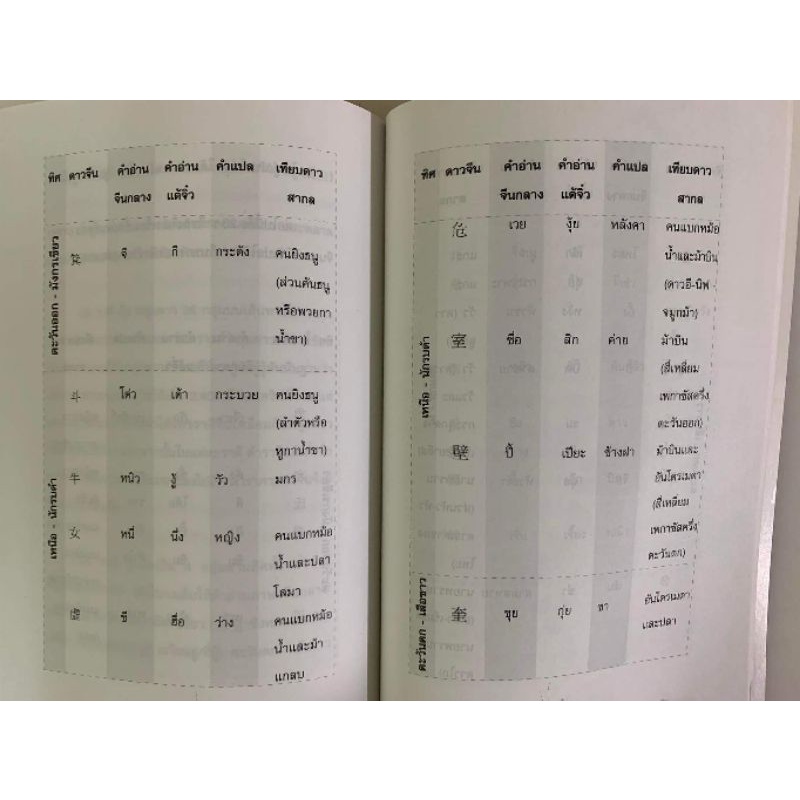 ทิศ ดาวจีน คำอ่าน คำอ่าน คำแปล เทียบดาว
จีนกลาง แต้จิ๋ว สากล
ตะวันออก - มังกรเขียว
箕 จี กี กระด้ง คนยิงธนู
(ส่วนคันธนู
หรือพวยกา
น้ำชา)
เหนือ - นักรบดำ
斗 โต่ว เต้า กระบวย คนยิงธนู
(ลำตัวหรือ
หูกาน้ำชา)
牛 หนิว งู้ วัว มกร
女 หนี่ นึ่ง หญิง คนแบกหม้อ
น้ำและปลา
โลมา
虛 ซี ฮือ ว่าง คนแบกหม้อ
น้ำและม้า
แกลบ
ทิศ ดาวจีน คำอ่าน คำอ่าน คำแปล เทียบดาว
จีนกลาง แต้จิ๋ว สากล
เหนือ - นักรบดำ
危 เวย งุ้ย หลังคา คนแบกหม้อ
น้ำและม้าบิน
(ดาวอี-นิฟ -
จมูกม้า)
室 ซื่อ สิก ค่าย ม้าบิน
(สี่เหลี่ยม
เพกาซัสครึ่ง
ตะวันออก)
壁 ปี้ เปียะ ข้างฝา ม้าบินและ
อันโดรเมดา
(สี่เหลี่ยม
เพกาซัสครึ่ง
ตะวันตก)
ตะวันตก - เสือขาว
奎 ขุย กุ่ย ขา อันโดรเมดา
และปลา